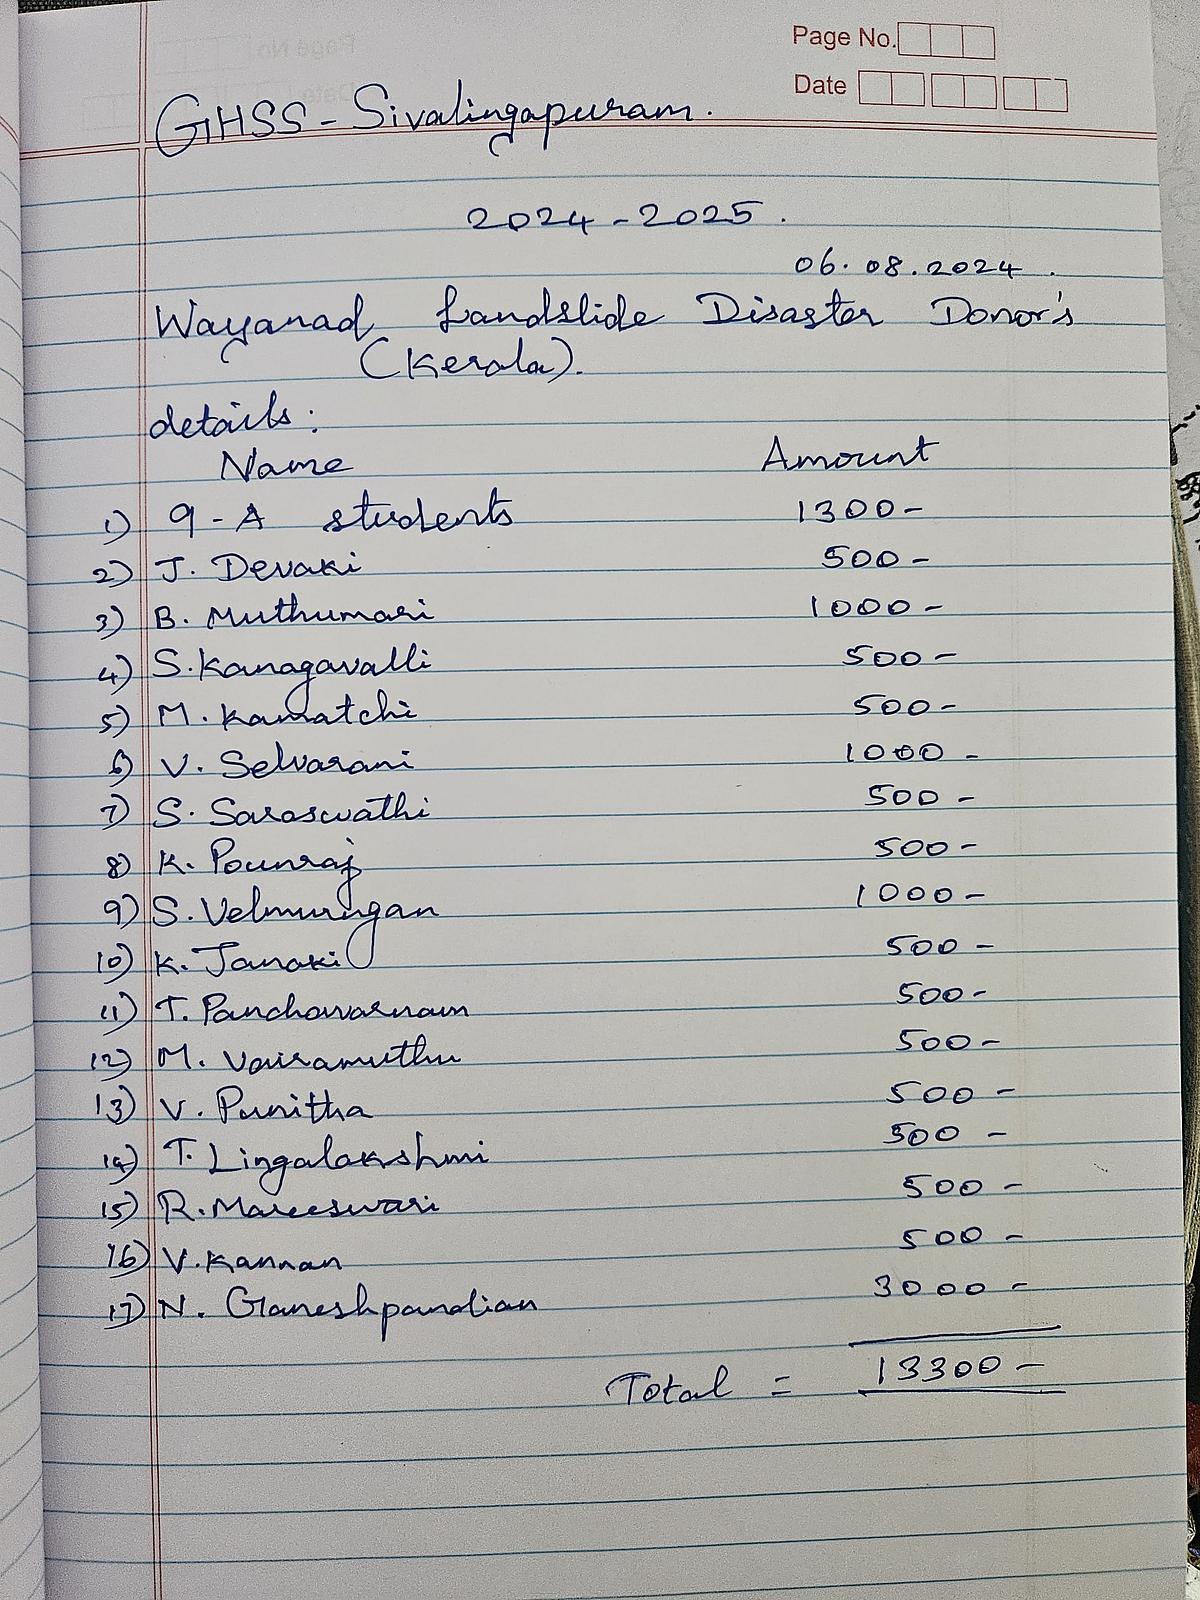 Page No.
Date
GHSS - Sivalingapuram.
2024 - 2025.
06.08.2024.
Wayanad Landslide Disaster Donor's
(Kerala).
details:
Name Amount
1) 9 - A students 1300-
2) J. Devaki 500-
3) B. Muthumari 1000-
4) S. Kanagavalli 500-
5) M. Kamatchi 500-
6) V. Selvarani 1000-
7) S. Saraswathi 500-
8) K. Pounraj 500-
9) S. Velmurugan 1000-
10) K. Janaki 500-
11) T. Panchavarnam 500-
12) M. Vairamuthu 500-
13) V. Punitha 500-
14) T. Lingalakshmi 500-
15) R. Mareeswari 500-
16) V. Kannan 500-
17) N. Ganeshpandian 3000-
Total = 13300-